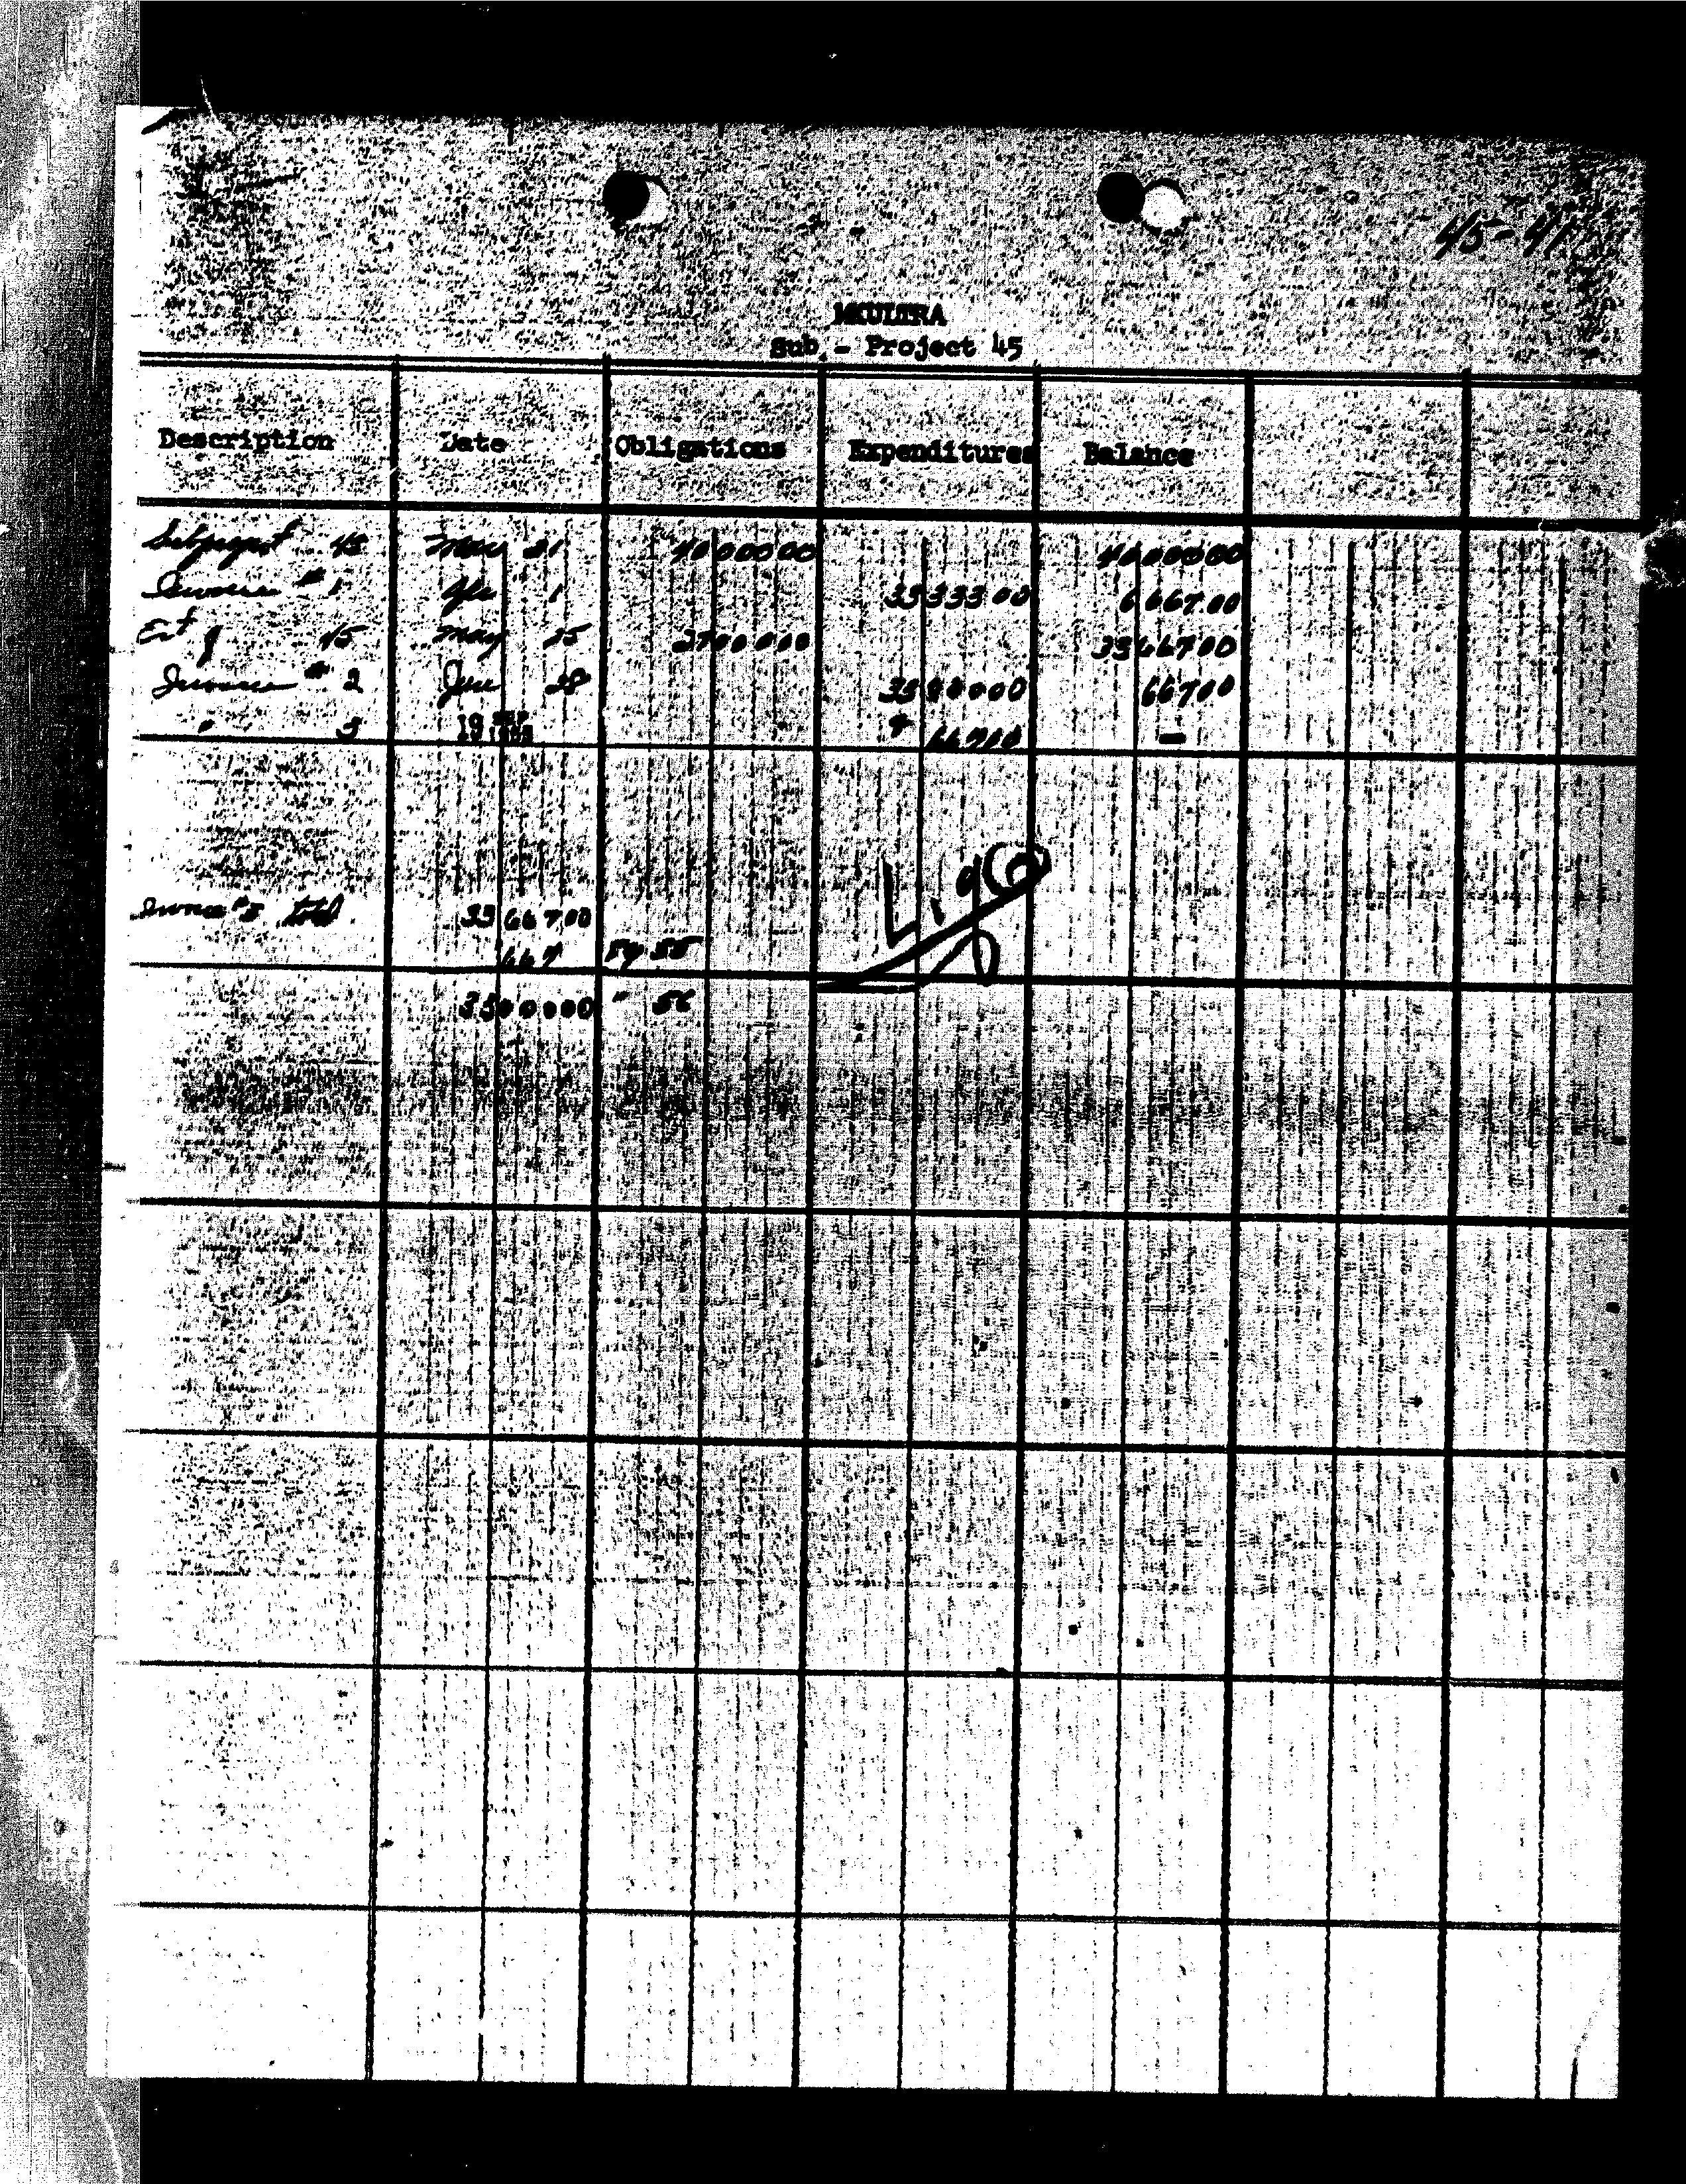 45-41
MKULTRA
Sub. - Project 45
Description Date Obligations Expenditures Balance
Subproject 45 Mar 31 40 000 00 40 000 00
Invoice # 1 Apr 1 33 333 00 6 667 00
Ext of 45 May 25 29 000 00 35 667 00
Invoice # 2 Jun 28 35 000 00 667 00
" 3 19 SEP 667 00 —
Invoice # total 35 667 00
667 FY 55
35 000 00 " 56